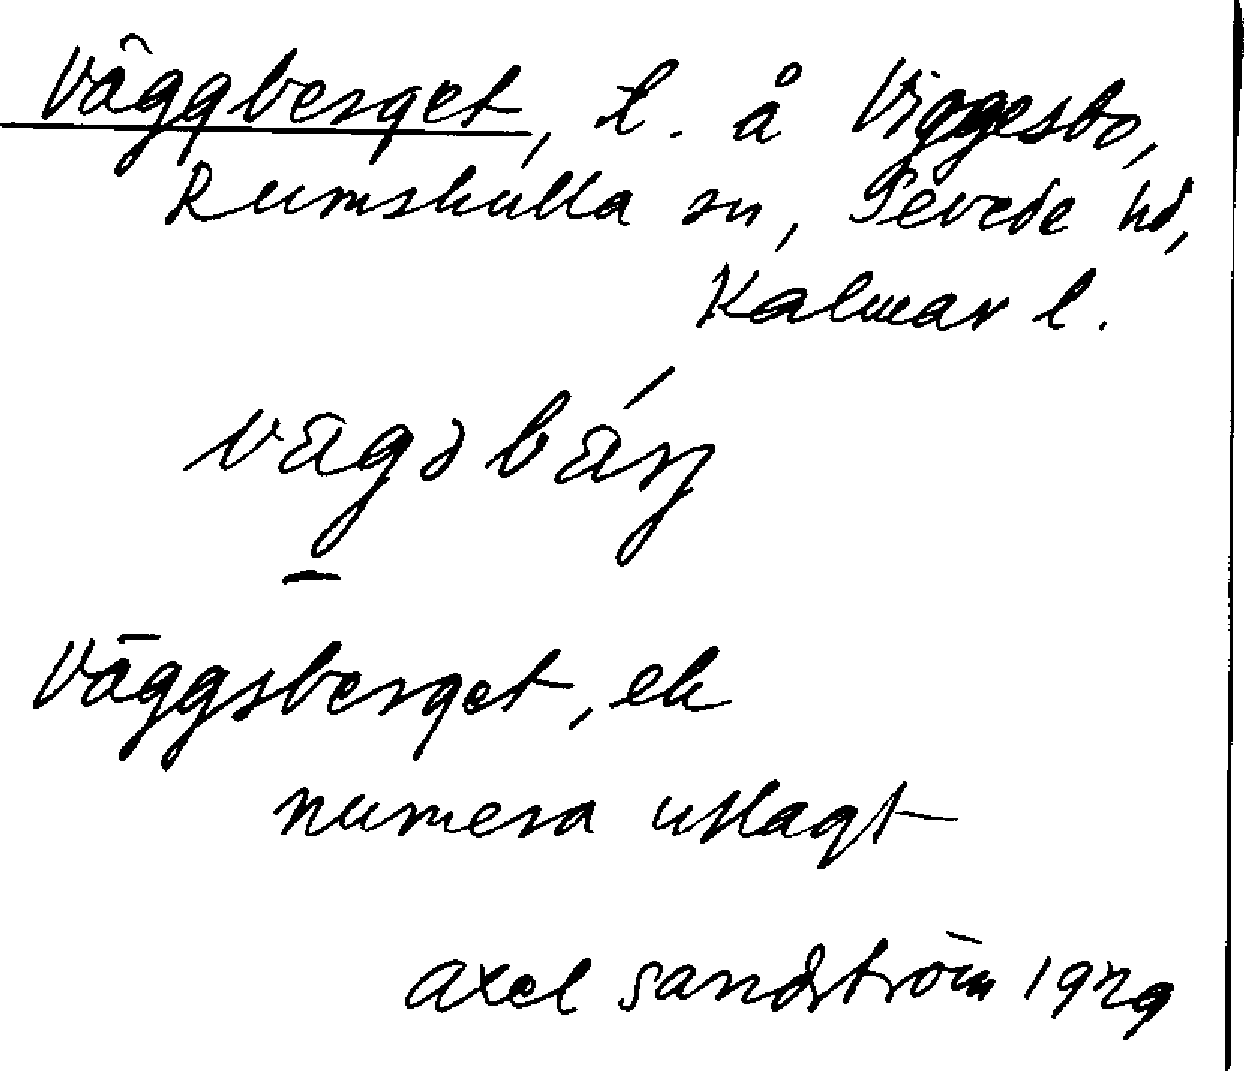 Väggberget, t. å Viggesbo,
Rumskulla sn, Sevede hd,
Kalmar l.
vägsbärj
Väggsberget, ek
numera utlagt
Axel Sandström 1929